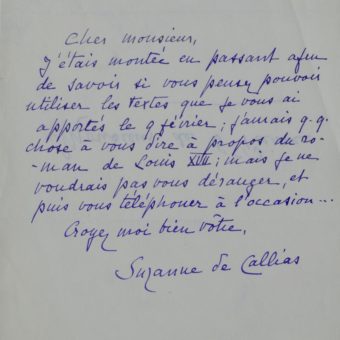 Cher monsieur,
J'étais montée en passant afin
de savoir si vous pensez pouvoir
utiliser les textes que je vous ai
apportés le 9 février ; j'aurais q.q.
chose à vous dire à propos du ro-
-man de Louis XVIII ; mais je ne
voudrais pas vous déranger, et
puis vous téléphoner à l'occasion...
Croyez moi bien vôtre,
Suzanne de Callias